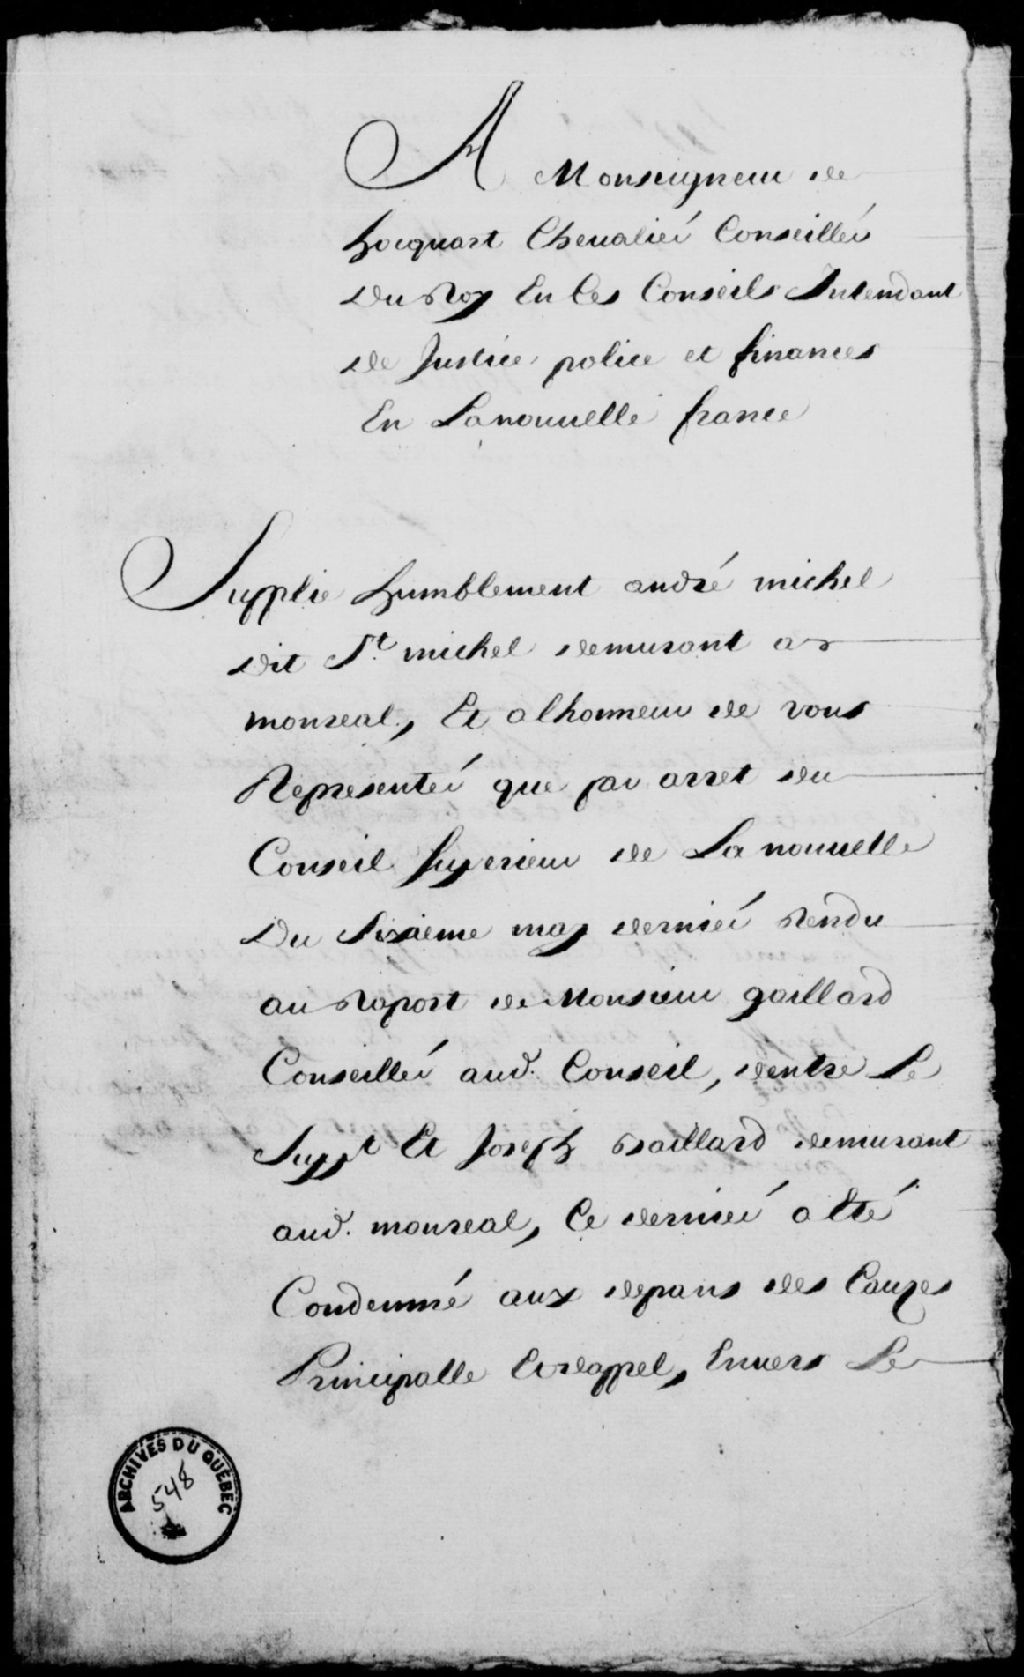 A Monseigneur de
hocquart Cheualiér Conseillér
Du Roy En Ces Conseils Intendant
de Justice police et finances
En La nouuelle france
Supplie humblement andré michel
dit St. michel demurant a
monreal, Et a lhonneur de vous
Representér que par arret du
Conseil superieur de La nouuelle
Du Sixieme may derniér Rendu
au Raport de Monsieur gaillard
Conseillér aud. Conseil, dentre Le
Suppt Et Joseph Raillard demurant
aud. monreal, Ce derniér a Eté
Condemné aux depans des Cauzes
Principalle Et deappel, Enuers Le
ARCHIVES DU QUÉBEC
548